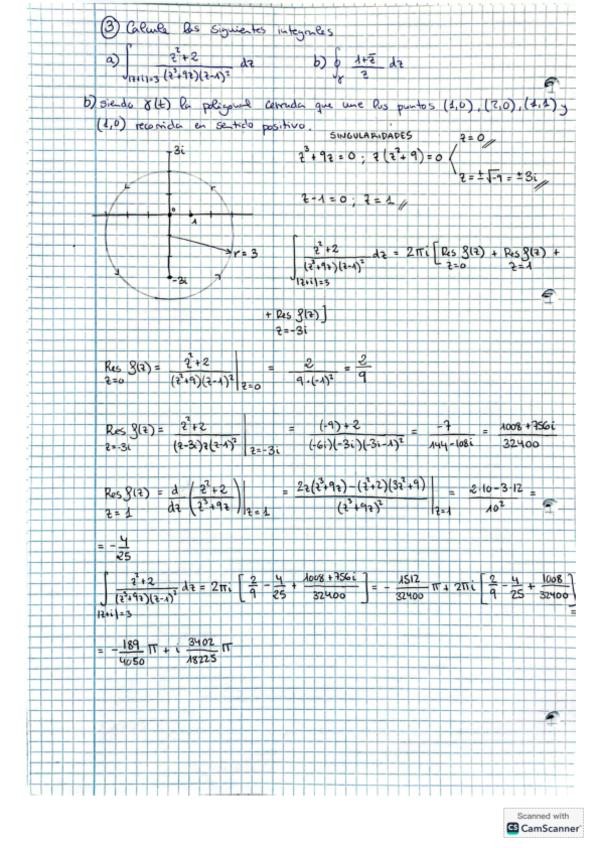 ③ Calcula las siguientes integrales
a) ∫_{|z+i|=3} (z²+2)/((z³+9z)(z-1)²) dz   b) ∮_γ (1+z̄)/z dz
b) siendo γ(t) la poligonal cerrada que une los puntos (1,0), (2,0), (1,1) y
(1,0) recorrida en sentido positivo.
SINGULARIDADES
z³+9z=0 ; z(z²+9)=0 < z=0
z=±√-9 = ±3i
z-1=0 ; z=1
3i
0 1
r=3
-3i
∫_{|z+i|=3} (z²+2)/((z³+9z)(z-1)²) dz = 2πi [Res_{z=0} f(z) + Res_{z=1} f(z) +
+ Res_{z=-3i} f(z)]
Res_{z=0} f(z) = (z²+2)/((z²+9)(z-1)²) |_{z=0} = 2/(9·(-1)²) = 2/9
Res_{z=-3i} f(z) = (z²+2)/((z-3i)z(z-1)²) |_{z=-3i} = ((-9)+2)/((-6i)(-3i)(-3i-1)²) = -7/(144-108i) = (1008+756i)/32400
Res_{z=1} f(z) = d/dz ((z²+2)/(z³+9z)) |_{z=1} = (2z(z³+9z)-(z²+2)(3z²+9))/(z³+9z)² |_{z=1} = (2·10-3·12)/10² =
= -4/25
∫_{|z+i|=3} (z²+2)/((z³+9z)(z-1)²) dz = 2πi [2/9 - 4/25 + (1008+756i)/32400] = -1512/32400 π + 2πi [2/9 - 4/25 + 1008/32400] =
= -189/4050 π + i 3402/18225 π
Scanned with
CS CamScanner